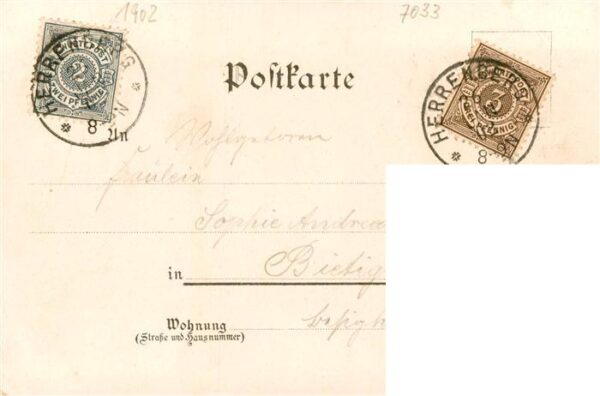 1902 7033
HERRENBERG
2
ZWEI PFENNIG
8
HERRENBERG
3
DREI PFENNIG
8
Postkarte
An
Wohlgeboren
Fräulein
Sophie Andrea
in Bietig
Wohnung
(Straße und Hausnummer)